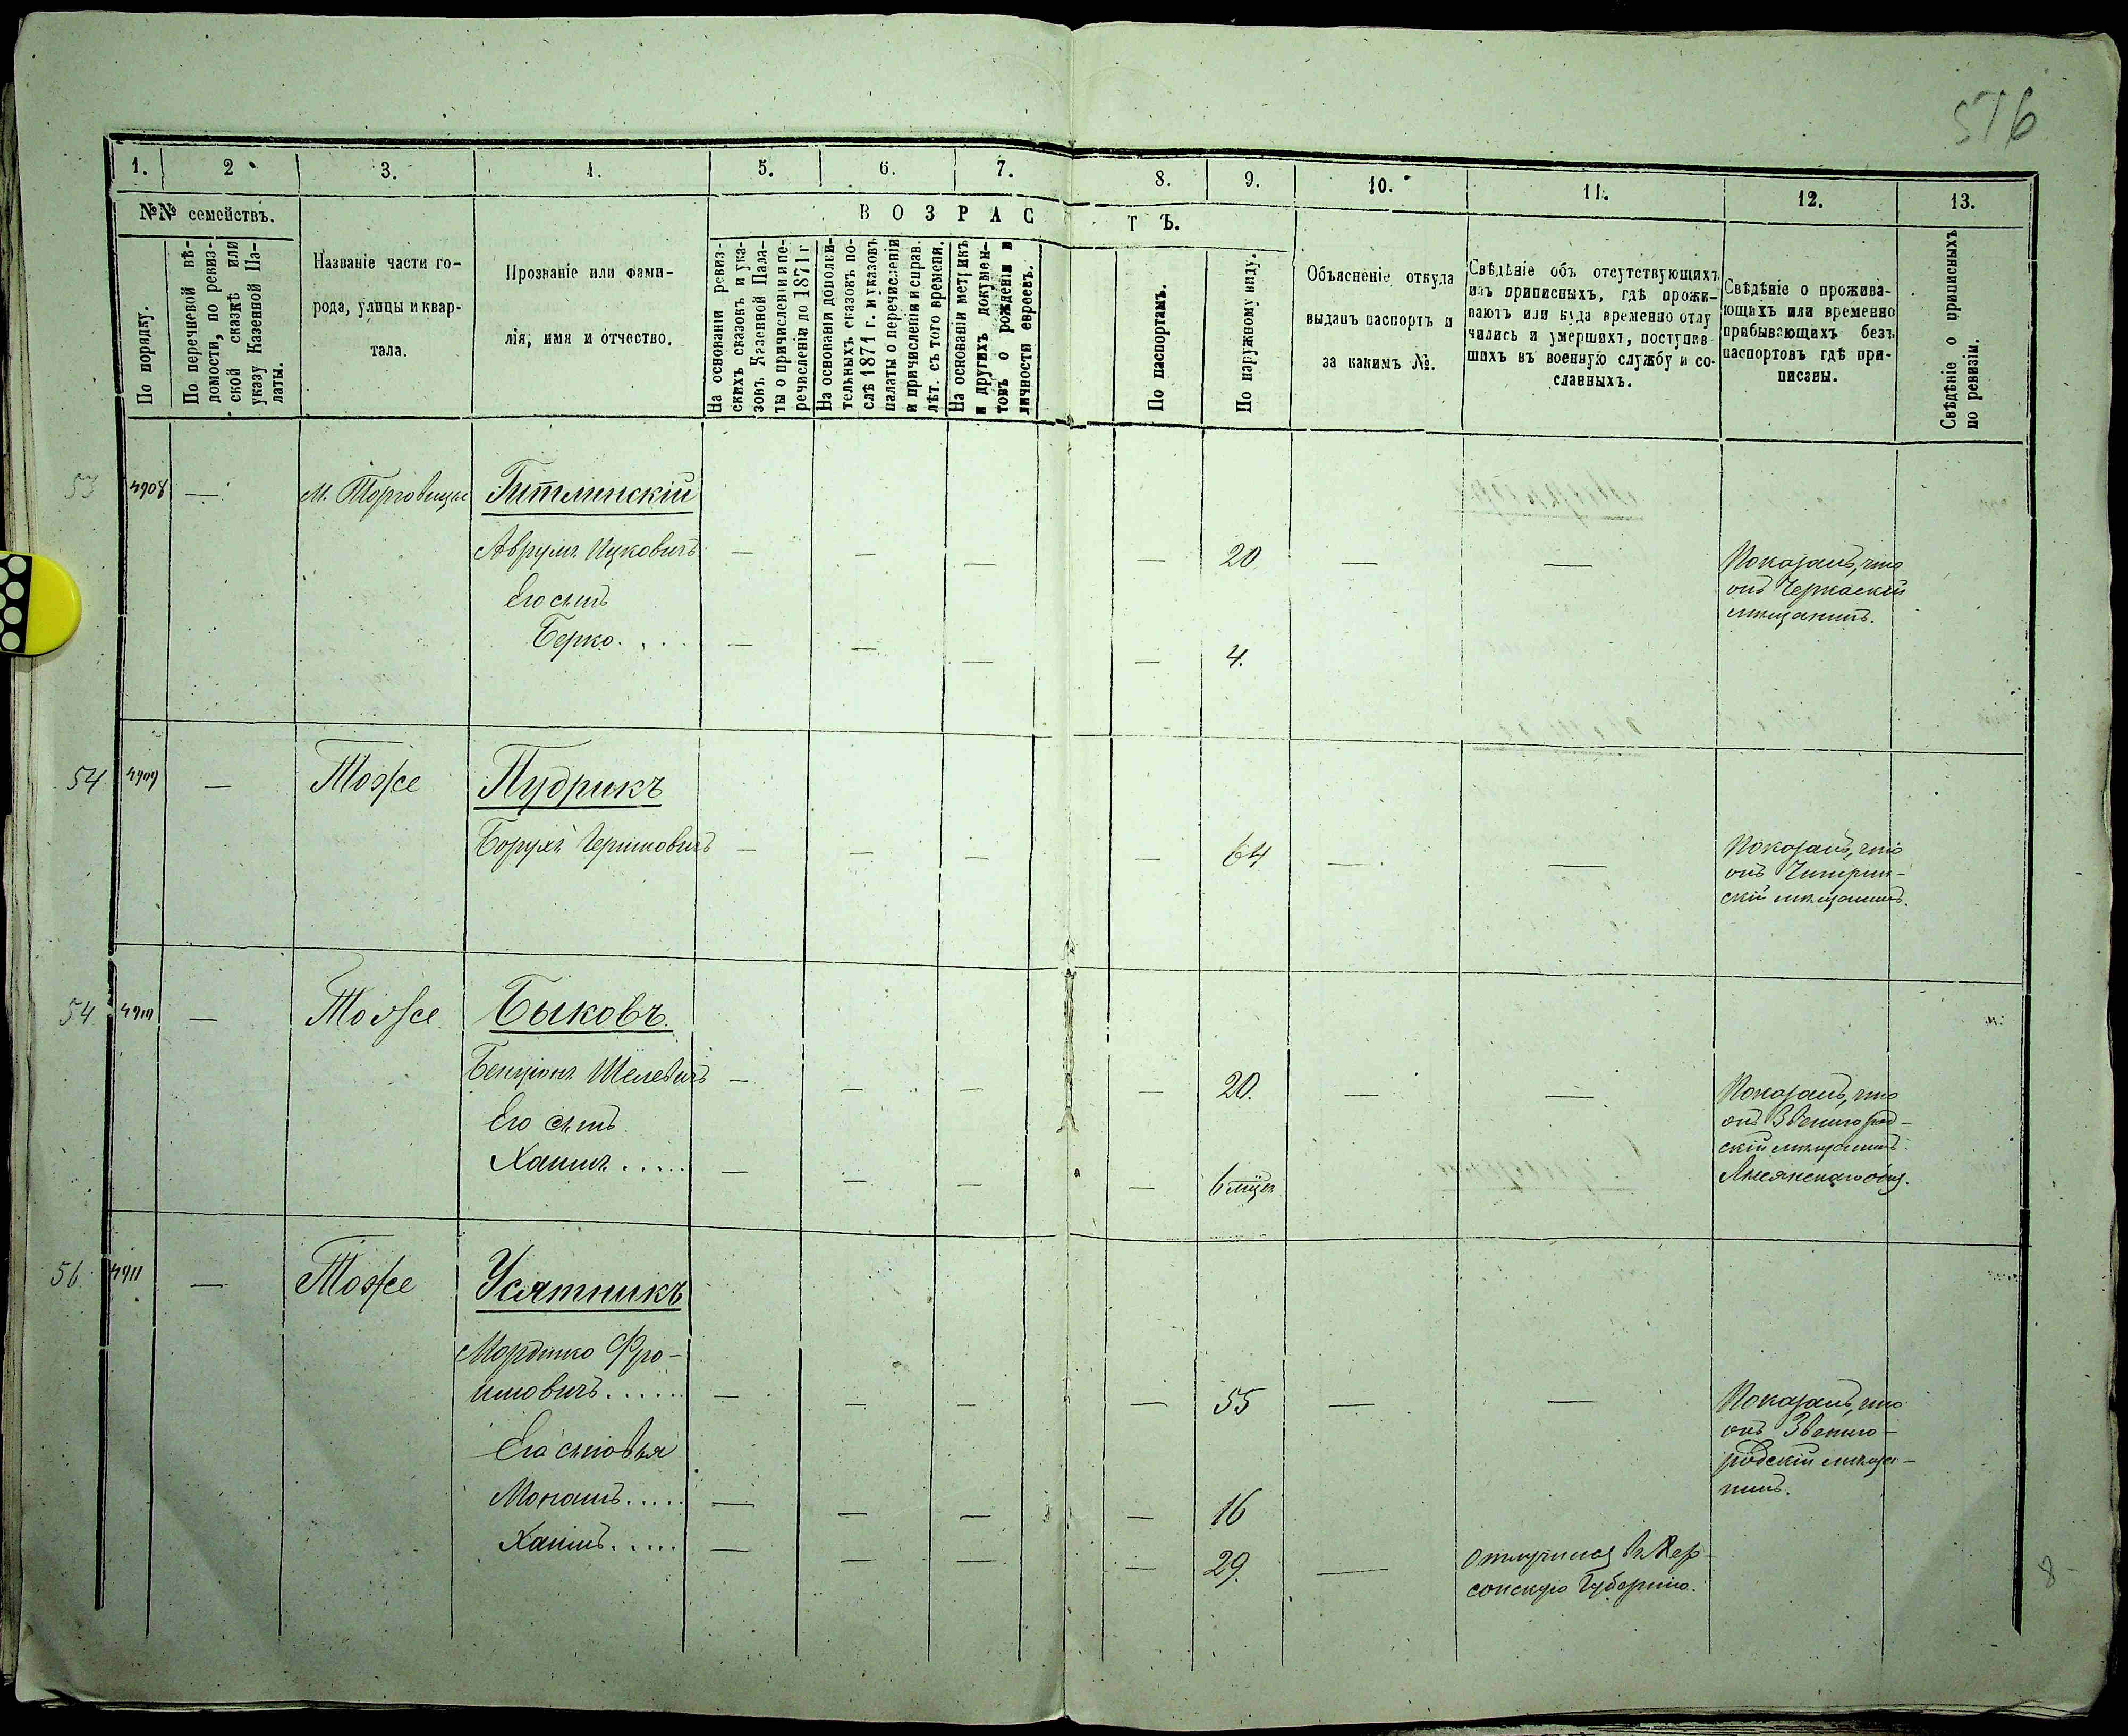 516
1. 2 3. 4. 5. 6. 7. 8. 9. 10. 11. 12. 13.
№№ семействъ.
По порядку.
По перечневой вѣ-
домости, по ревиз-
ской сказкѣ или
указу Казенной Па-
латы.
Названіе части го-
рода, улицы и квар-
тала.
Прозваніе или фами-
лія, имя и отчество.
ВОЗРАСТЪ.
На основаніи ревиз-
скихъ сказокъ и ука-
зовъ Казенной Пала-
ты о причисленіи и пе-
речисленіи до 1871 г
На основаніи дополни-
тельныхъ сказокъ по-
слѣ 1871 г. и указовъ
палаты о перечисленіи
и причисленія и справ.
лѣт. съ того времени.
На основаніи метрикъ
и другихъ докумен-
товъ о рожденіи и
личности евреевъ.
По паспортамъ.
По наружному виду.
Объясненіе откуда
выданъ паспортъ и
за какимъ №.
Свѣдѣніе объ отсутствующихъ
изъ приписныхъ, гдѣ прожи-
ваютъ или куда временно отлу
чились и умершихъ, поступив
шихъ въ военную службу и со-
сланныхъ.
Свѣдѣніе о прожива-
ющихъ или временно
прабывающихъ безъ
паспортовъ гдѣ при-
писаны.
Свѣдѣніе о приписныхъ
по ревизіи.
53 4908 — м. Торговица Гитлинскій
Аврумъ Ицковичъ — — — — 20 — — Показалъ, что
онъ Черкаскій
мѣщанинъ.
Его сынъ
Берко.... — — — — 4.
54 4909 — Тоже Пудрикъ
Борухъ Гершковичъ — — — — 64 — — Показалъ, что
онъ Чигирин-
скій мѣщанинъ.
54 4910 — Тоже Быковъ.
Бенціонъ Шелевичъ — — — — 20. — — Показалъ, что
онъ Звенигород-
скій мѣщанинъ
Лысянскаго общ.
Его сынъ
Хаимъ..... — — — — 6 мѣся
56 4911 — Тоже Усятникъ
Мордко Фро-
имовичъ...... — — — — 55 — — Показалъ, что
онъ Звениго-
родскій мѣща-
нинъ.
Его сыновья
Монашъ..... — — — — 16
Хаимъ..... — — — — 29. — Отлучился въ Хер-
сонскую Губернію.
8